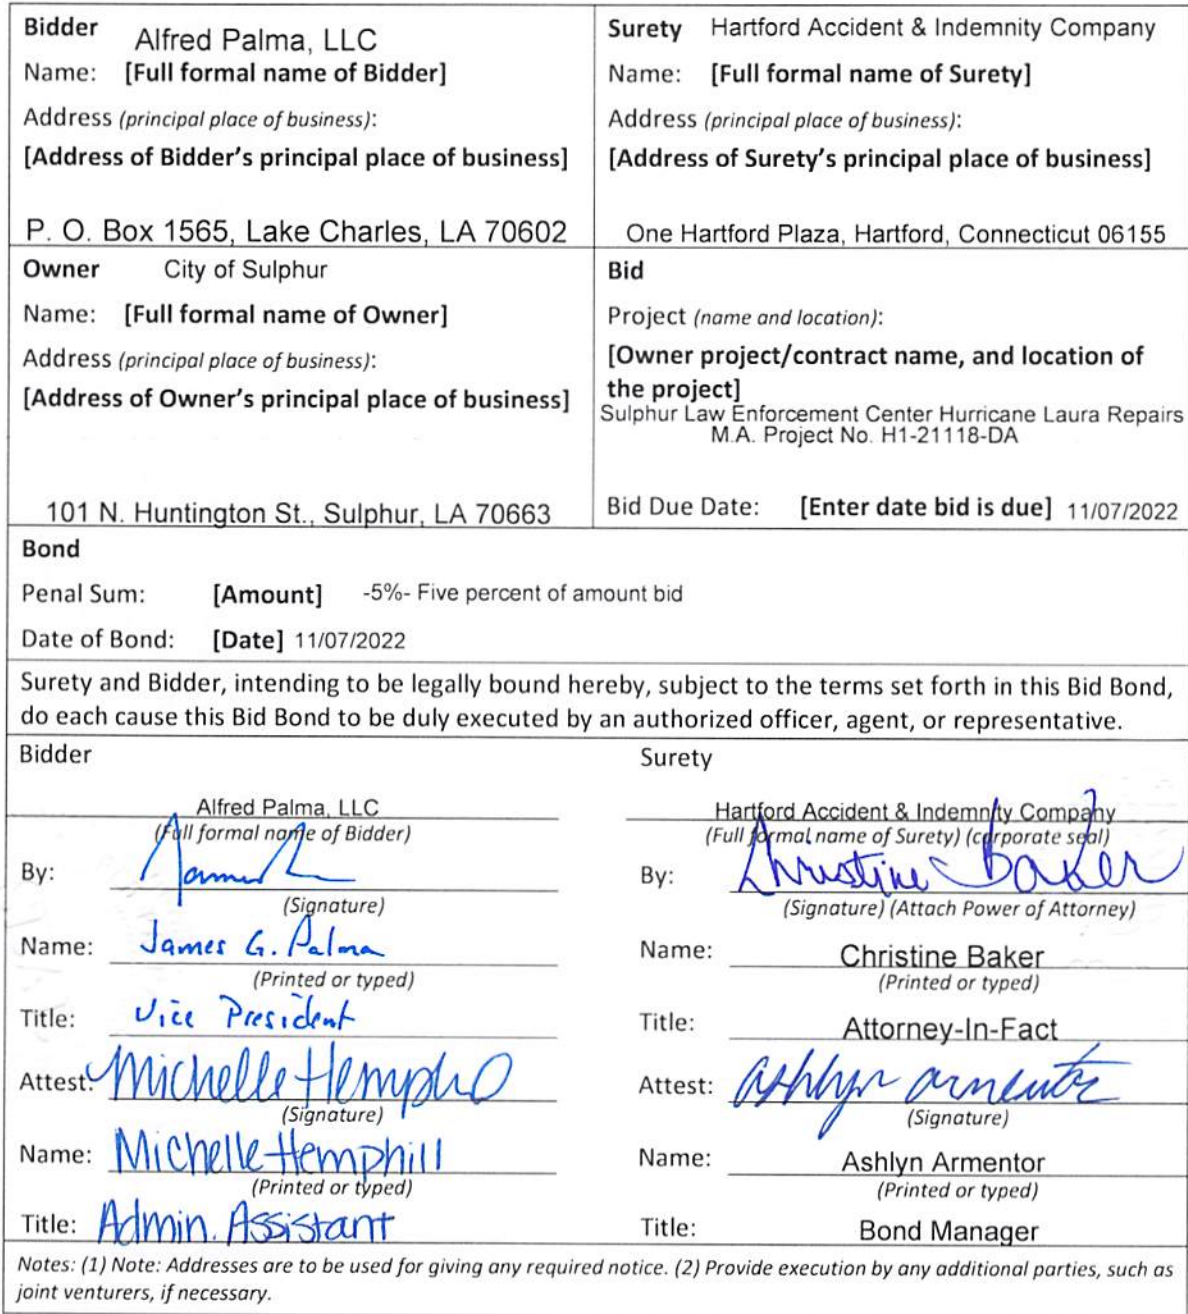 Bidder Alfred Palma, LLC
Name: [Full formal name of Bidder]
Address (principal place of business):
[Address of Bidder's principal place of business]
P. O. Box 1565, Lake Charles, LA 70602
Surety Hartford Accident & Indemnity Company
Name: [Full formal name of Surety]
Address (principal place of business):
[Address of Surety's principal place of business]
One Hartford Plaza, Hartford, Connecticut 06155
Owner City of Sulphur
Name: [Full formal name of Owner]
Address (principal place of business):
[Address of Owner's principal place of business]
101 N. Huntington St., Sulphur, LA 70663
Bid
Project (name and location):
[Owner project/contract name, and location of
the project]
Sulphur Law Enforcement Center Hurricane Laura Repairs
M.A. Project No. H1-21118-DA
Bid Due Date: [Enter date bid is due] 11/07/2022
Bond
Penal Sum: [Amount] -5%- Five percent of amount bid
Date of Bond: [Date] 11/07/2022
Surety and Bidder, intending to be legally bound hereby, subject to the terms set forth in this Bid Bond,
do each cause this Bid Bond to be duly executed by an authorized officer, agent, or representative.
Bidder
Alfred Palma, LLC
(Full formal name of Bidder)
By:
(Signature)
Name: James G. Palma
(Printed or typed)
Title: Vice President
Attest: Michelle Hemphill
(Signature)
Name: Michelle Hemphill
(Printed or typed)
Title: Admin. Assistant
Surety
Hartford Accident & Indemnity Company
(Full formal name of Surety) (corporate seal)
By: Christine Baker
(Signature) (Attach Power of Attorney)
Name: Christine Baker
(Printed or typed)
Title: Attorney-In-Fact
Attest: Ashlyn Armentor
(Signature)
Name: Ashlyn Armentor
(Printed or typed)
Title: Bond Manager
Notes: (1) Note: Addresses are to be used for giving any required notice. (2) Provide execution by any additional parties, such as
joint venturers, if necessary.